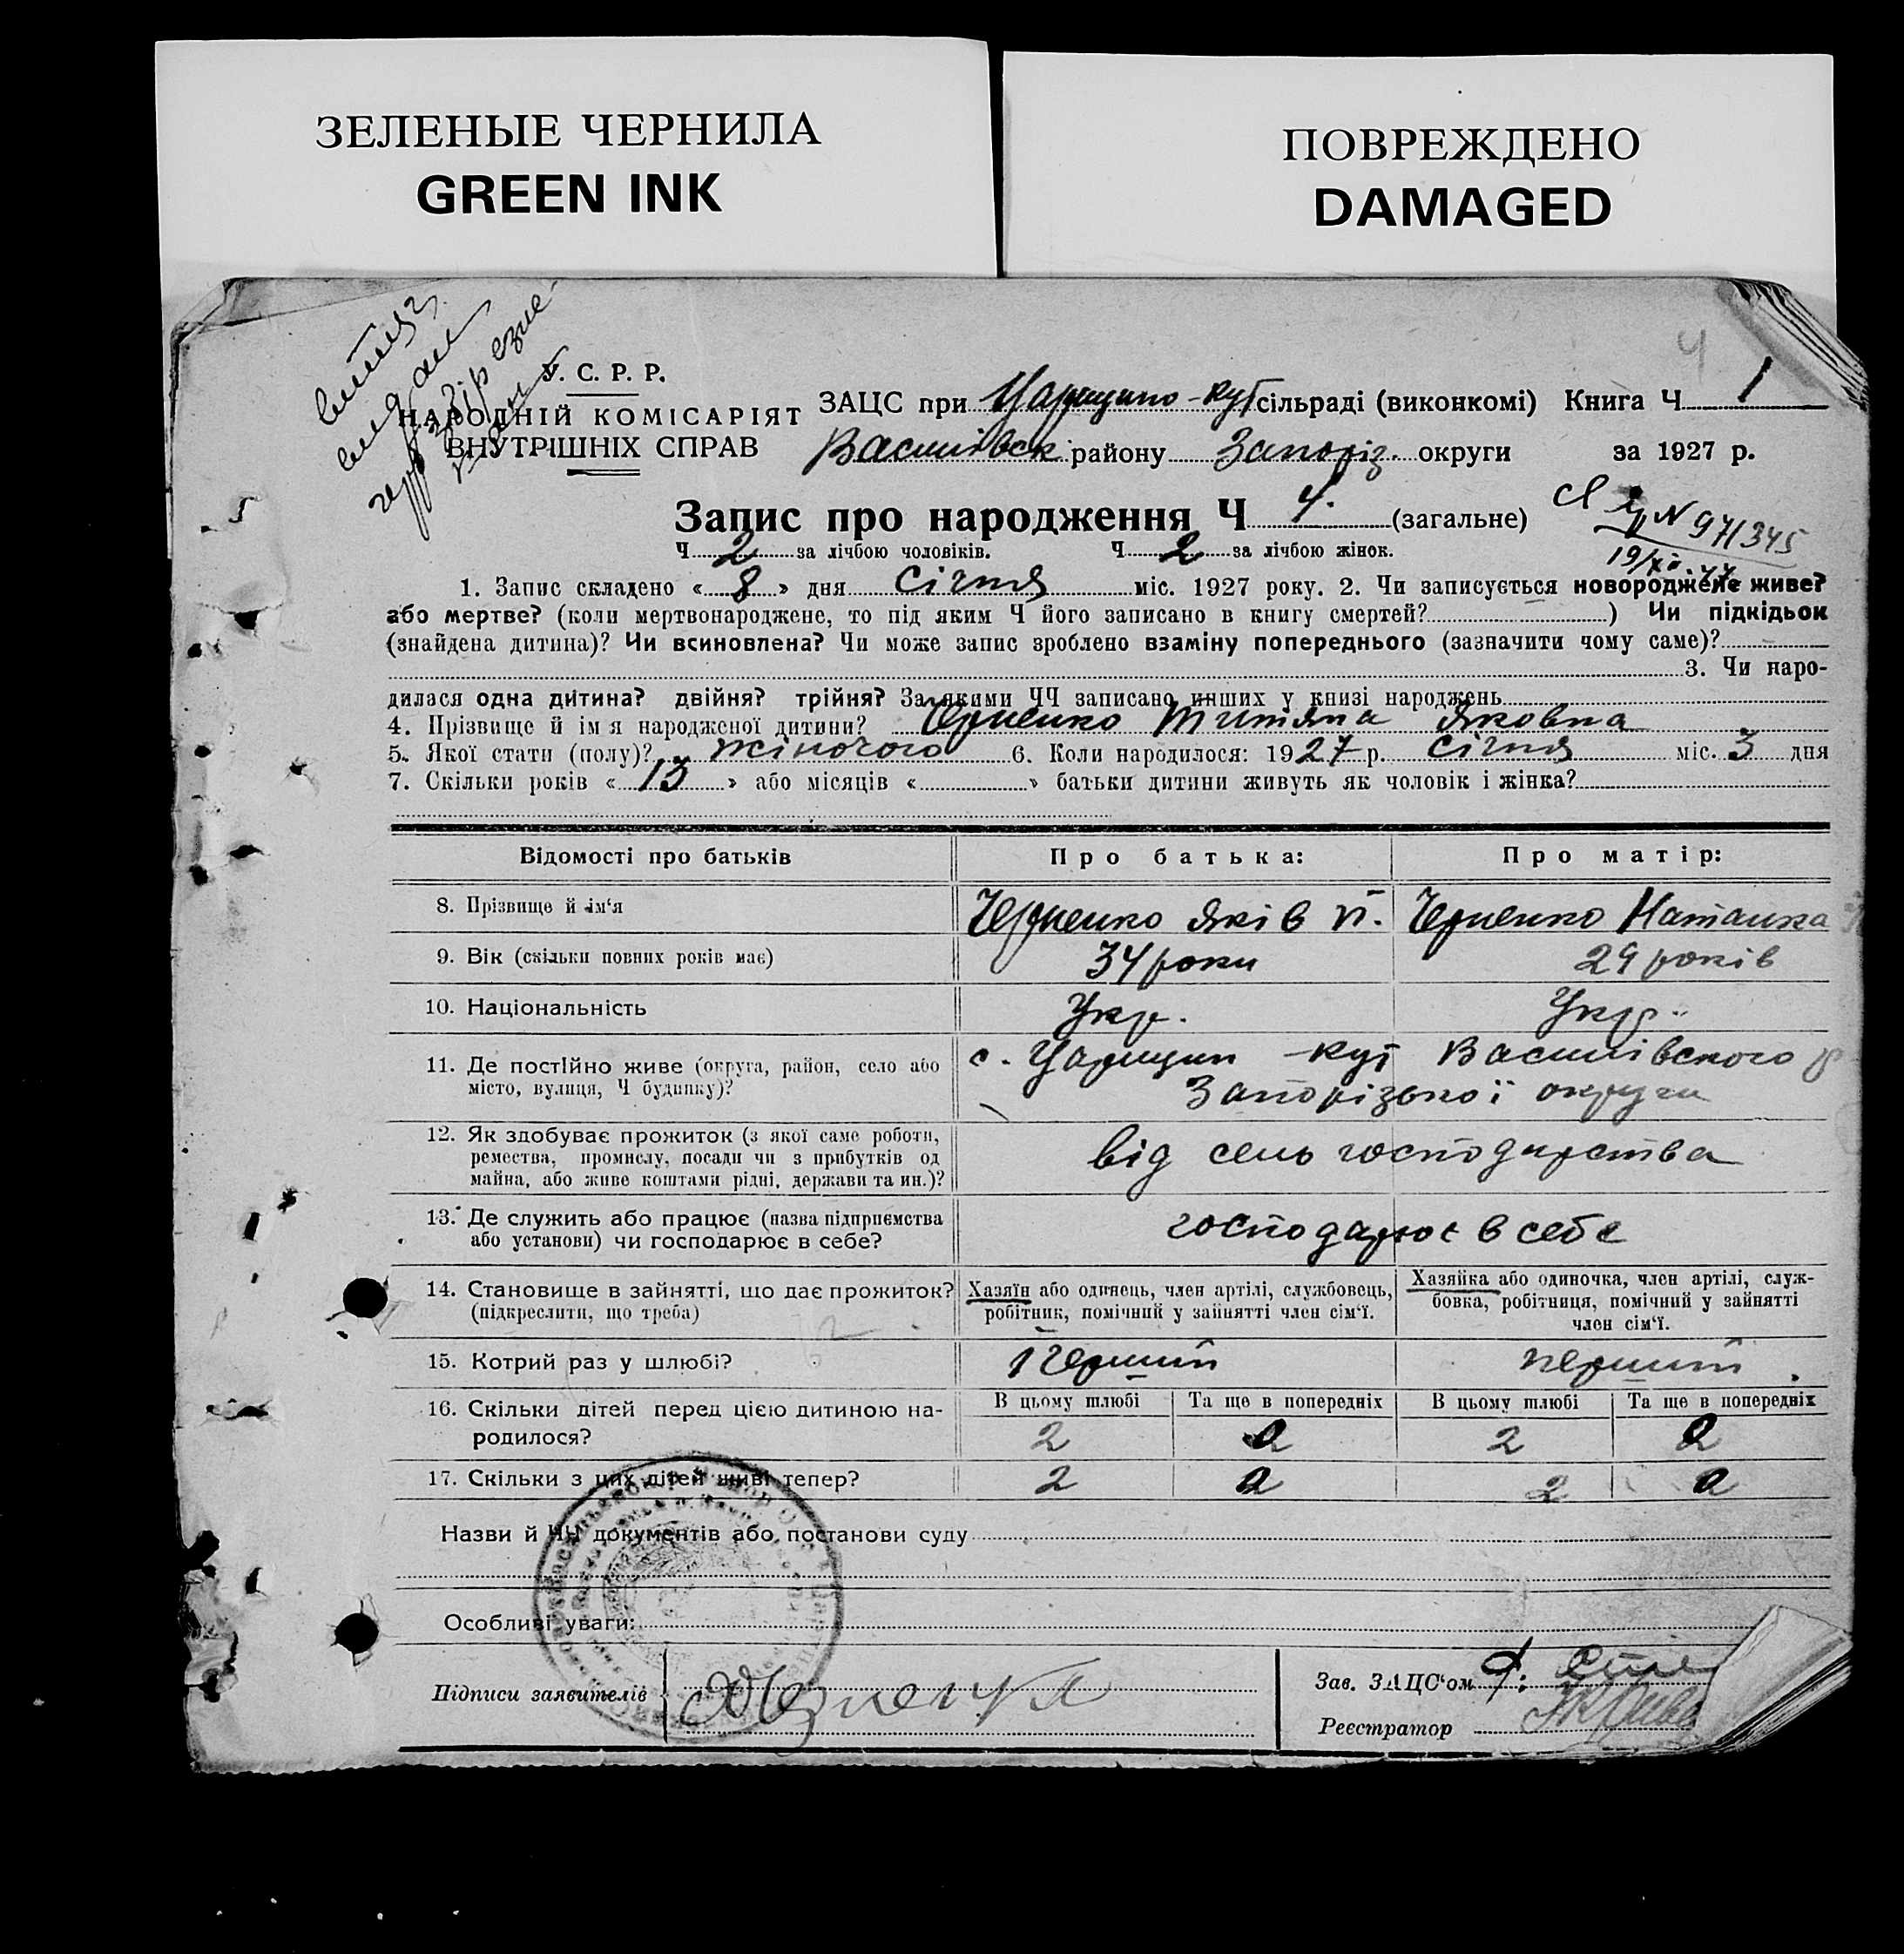 ЗЕЛЕНЫЕ ЧЕРНИЛА
GREEN INK
ПОВРЕЖДЕНО
DAMAGED
У. С. Р. Р.
НАРОДНІЙ КОМІСАРІЯТ
ВНУТРІШНІХ СПРАВ
ЗАЦС при Царицино-кут сільраді (виконкомі) Книга Ч 1
Василівськ району Запоріз. округи за 1927 р.
Запис про народження Ч 4. (загальне)
N 971345
Ч 2 за лічбою чоловіків. Ч 2 за лічбою жінок.
1. Запис складено « 8 » дня січня міс. 1927 року. 2. Чи записується новороджене живе?
або мертве? (коли мертвонароджене, то під яким Ч його записано в книгу смертей? ) Чи підкідьок
(знайдена дитина)? Чи всиновлена? Чи може запис зроблено взаміну попереднього (зазначити чому саме)?
3. Чи наро-
дилася одна дитина? двійня? трійня? За якими ЧЧ записано инших у книзі народжень
4. Прізвище й ім я народженої дитини? Черненко Титяна Яковна
5. Якої стати (полу)? жіночого 6. Коли народилося: 1927 р. січня міс. 3 дня
7. Скільки років « 13 » або місяців « » батьки дитини живуть як чоловік і жінка?
Відомості про батьків Про батька: Про матір:
8. Прізвище й ім'я Черненко Яків П. Черненко Наталка
9. Вік (скільки повних років має) 34 роки 29 років
10. Національність Укр. Укр.
11. Де постійно живе (округа, район, село або с. Царицин - кут Василівского р
місто, вулиця, Ч будинку)? Запорізької округи
12. Як здобуває прожиток (з якої саме роботи,
ремества, промислу, посади чи з прибутків од від сель господарства
майна, або живе коштами рідні, держави та ин.)?
13. Де служить або працює (назва підприємства
або установи) чи господарює в себе? господарює в себе
14. Становище в зайнятті, що дає прожиток? Хазяїн або одинець, член артілі, службовець, Хазяйка або одиночка, член артілі, служ-
(підкреслити, що треба) робітник, помічний у зайнятті член сім'ї. бовка, робітниця, помічний у зайнятті
член сім'ї.
15. Котрий раз у шлюбі? Перший перший
16. Скільки дітей перед цією дитиною на- В цьому шлюбі Та ще в попередніх В цьому шлюбі Та ще в попередніх
родилося? 2 2
17. Скільки з цих дітей живі тепер? 2 2
Назви й ЧЧ документів або постанови суду
Особливі уваги:
Підписи заявителів Зав. ЗАЦС'ом
Реєстратор